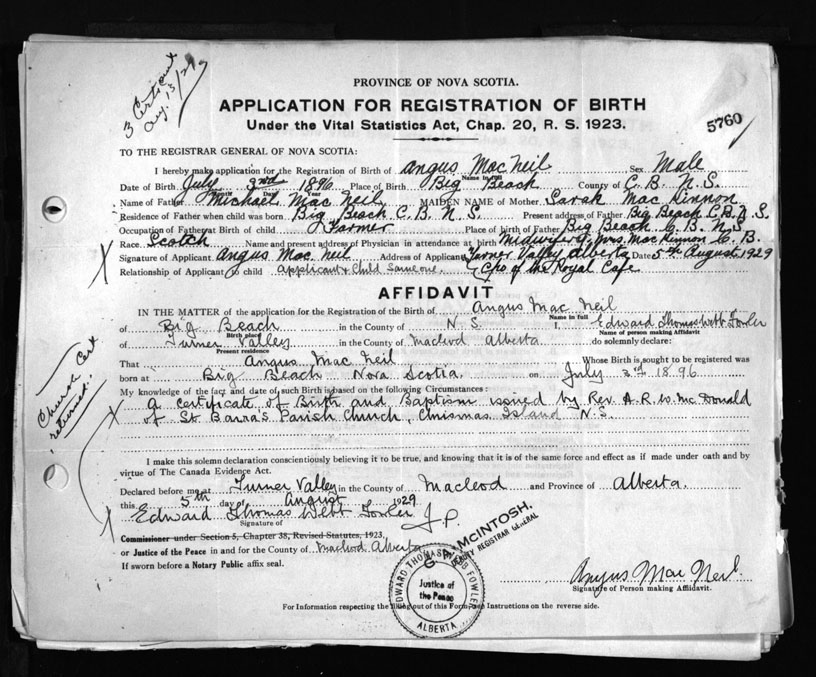 3 Certs sent
Aug. 13/29
PROVINCE OF NOVA SCOTIA.
APPLICATION FOR REGISTRATION OF BIRTH
Under the Vital Statistics Act, Chap. 20, R. S. 1923.
5760
TO THE REGISTRAR GENERAL OF NOVA SCOTIA:
I hereby make application for the Registration of Birth of Angus Mac Neil Sex Male
Name in full
Date of Birth July 3rd 1896 Place of Birth Big Beach County of C. B. N. S.
Month Day Year
Name of Father Michael Mac Neil MAIDEN NAME of Mother Sarah Mac Kinnon
Residence of Father when child was born Big Beach C. B. N. S. Present address of Father Big Beach C.B.N.S.
Occupation of Father at Birth of child Farmer Place of birth of Father Big Beach C. B. N. S.
Race Scotch Name and present address of Physician in attendance at birth Midwife Mrs. MacKinnon C. B.
Signature of Applicant Angus Mac. Neil Address of Applicant Turner Valley Alberta Date 5th August 1929
Relationship of Applicant to child Applicant & Child Same one. C/o of the Royal Cafe
AFFIDAVIT
IN THE MATTER of the application for the Registration of the Birth of Angus Mac Neil
Name in Full
of Big Beach in the County of N. S. I, Edward Thomas Webb Fowler
Birth place Name of person making Affidavit
of Turner Valley in the County of Macleod Alberta do solemnly declare:
Present residence
That Angus Mac Neil Whose Birth is sought to be registered was
born at Big Beach Nova Scotia on July 3rd 1896
My knowledge of the fact and date of such Birth is based on the following Circumstances:
A certificate of Birth and Baptism issued by Rev. A. R. W. McDonald
of St Barra's Parish Church, Chrismas Island N.S.
Church Cert
returned.
I make this solemn declaration conscientiously believing it to be true, and knowing that it is of the same force and effect as if made under oath and by
virtue of The Canada Evidence Act.
Declared before me at Turner Valley in the County of Macleod and Province of Alberta.
this 5th day of August 1929
Edward Thomas Webb Fowler J.P.
Signature of
Commissioner under Section 5, Chapter 38, Revised Statutes, 1923,
or Justice of the Peace in and for the County of Macleod Alberta
If sworn before a Notary Public affix seal.
McINTOSH,
DEPUTY REGISTRAR GENERAL
EDWARD THOMAS WEBB FOWLER
Justice of
the Peace
ALBERTA
Angus Mac Neil
Signature of Person making Affidavit.
For Information respecting the filling out of this Form, see Instructions on the reverse side.